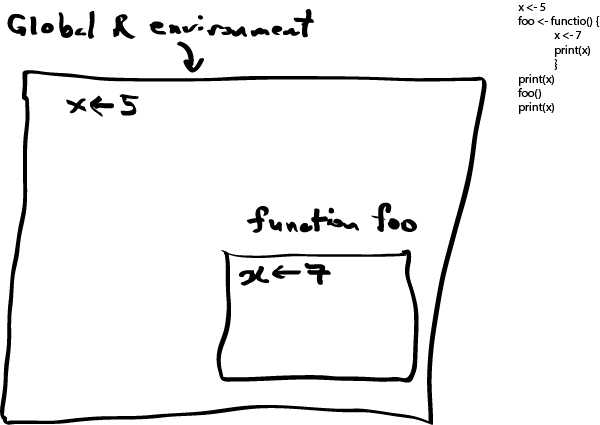 Global R environment
x ← 5
function foo
x ← 7
x <- 5
foo <- functio() {
x <- 7
print(x)
}
print(x)
foo()
print(x)